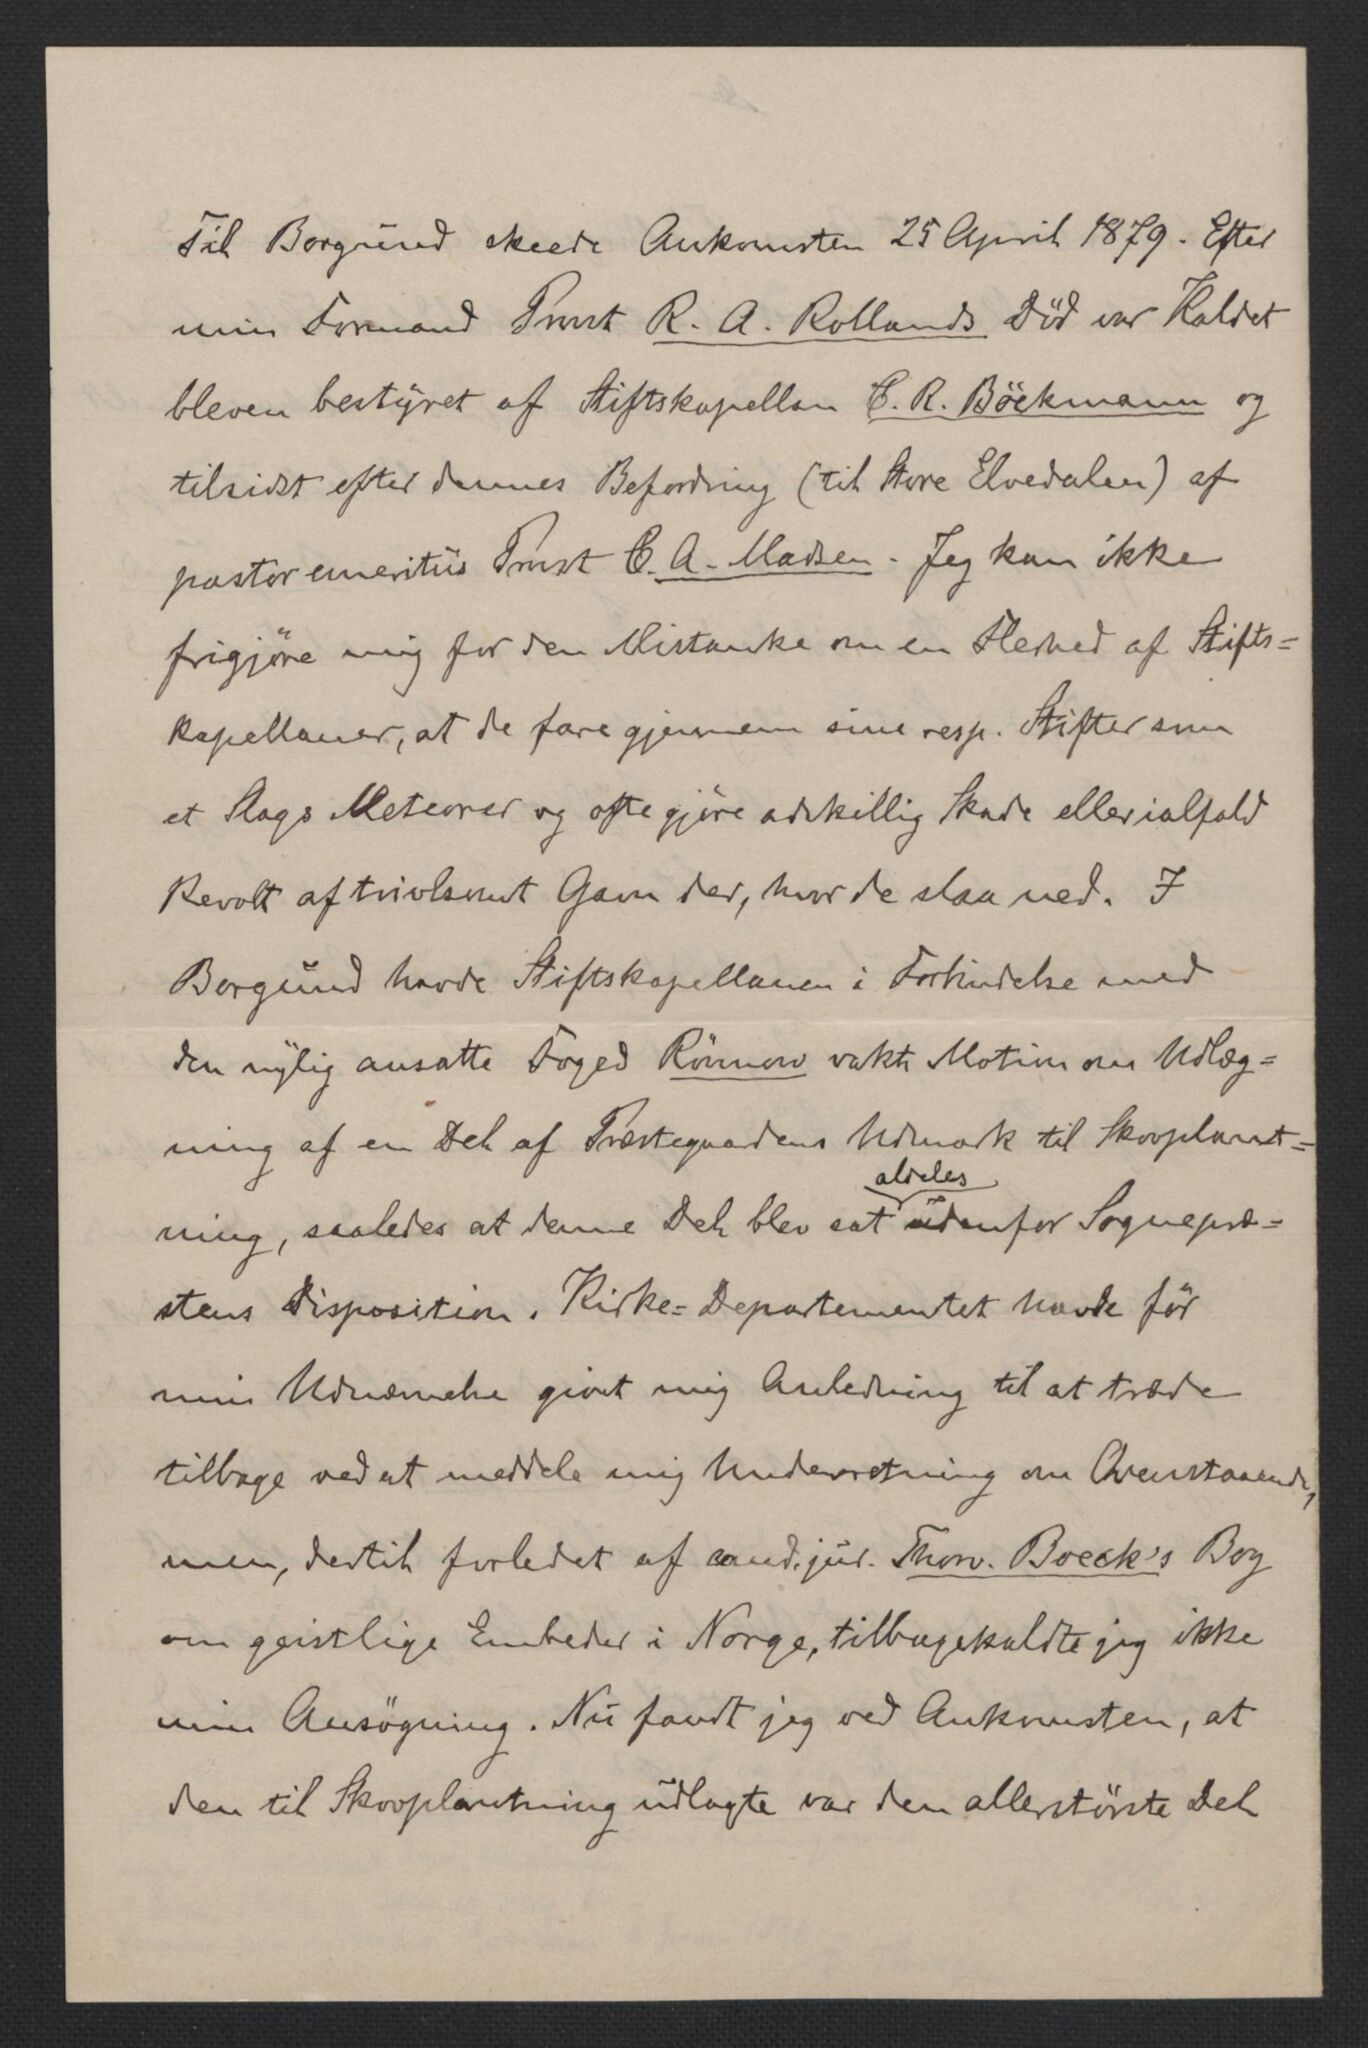 Til Borgund skeede Ankomsten 25 April 1879. Efter
min Formand Provst R. A. Rollands Död var Kaldet
bleven bestyret af Stiftskapellan C. R. Böckmann og
tilsidst efter dennes Befordring (til Store Elvedalen) af
pastor emeritus Provst C. A. Madsen. Jeg kan ikke
frigjöre mig for den Mistanke om en Flerhed af Stifts=
kapellaner, at de fare gjennem sine resp. Stifter som
et Slags Meteorer og ofte gjöre adskillig Skade eller ialfald
Revolt af tvivlsomt Gavn der, hvor de slaa ned. I
Borgund havde Stiftskapellanen i Forbindelse med
den nylig ansatte Foged Rönnow vakt Motion om Udlæg=
ning af en Del af Præstegaardens Udmark til Skovplant=
aldeles
ning, saaledes at denne Del blev sat udenfor Sognepræ=
stens Disposition. Kirke=Departementet havde för
min Udnævnelse givet mig Anledning til at træde
tilbage ved at meddele mig Underretning om Ovenstaaende,
men, dertil forledet af cand. jur. Thorv. Boeck's Bog
om geistlige Embeder i Norge, tilbagekaldte jeg ikke
min Ansögning. Nu fandt jeg ved Ankomsten, at
den til Skovplantning udlagte var den allerstörste Del